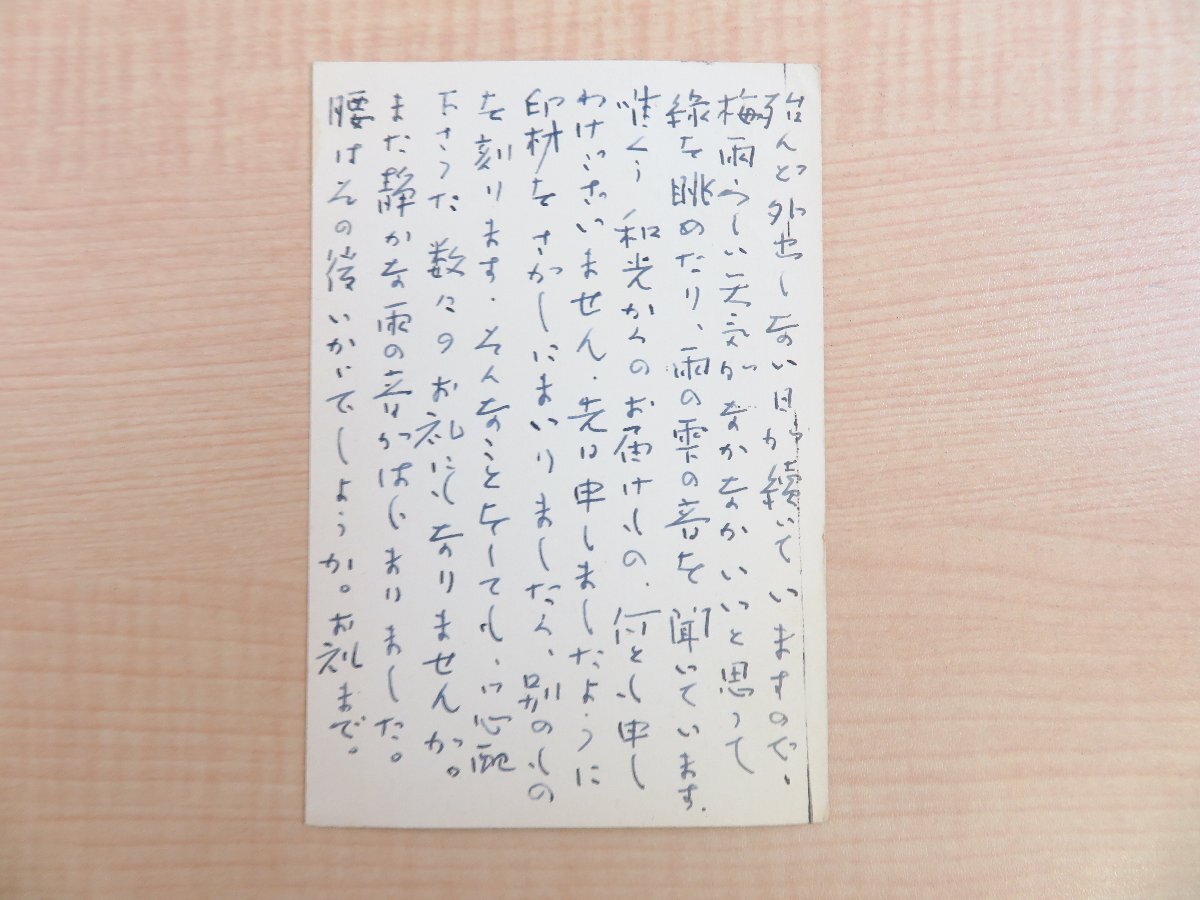 殆んど外出しない日が続いていますので、
梅雨らしい天気がなかなかいいと思って
緑を眺めたり、雨の雫の音を聞いています。
唯今、和光からのお届けもの、何とも申し
わけございません。先日申しましたように
印材をさがしにまいりましたら、別のもの
を刻ります。そんなことをしても、ご心配
下さった数々のお礼にもなりませんが。
また静かな雨の音がはじまりました。
腰はその後いかがでしょうか。お礼まで。